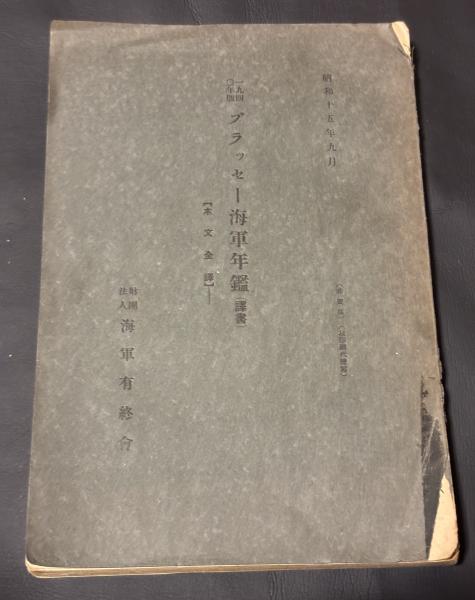 昭和十五年九月
（非賣品）（以印刷代謄寫）
一九四〇年版 ブラッセー海軍年鑑（譯書）
【本文全譯】
財團法人 海軍有終會